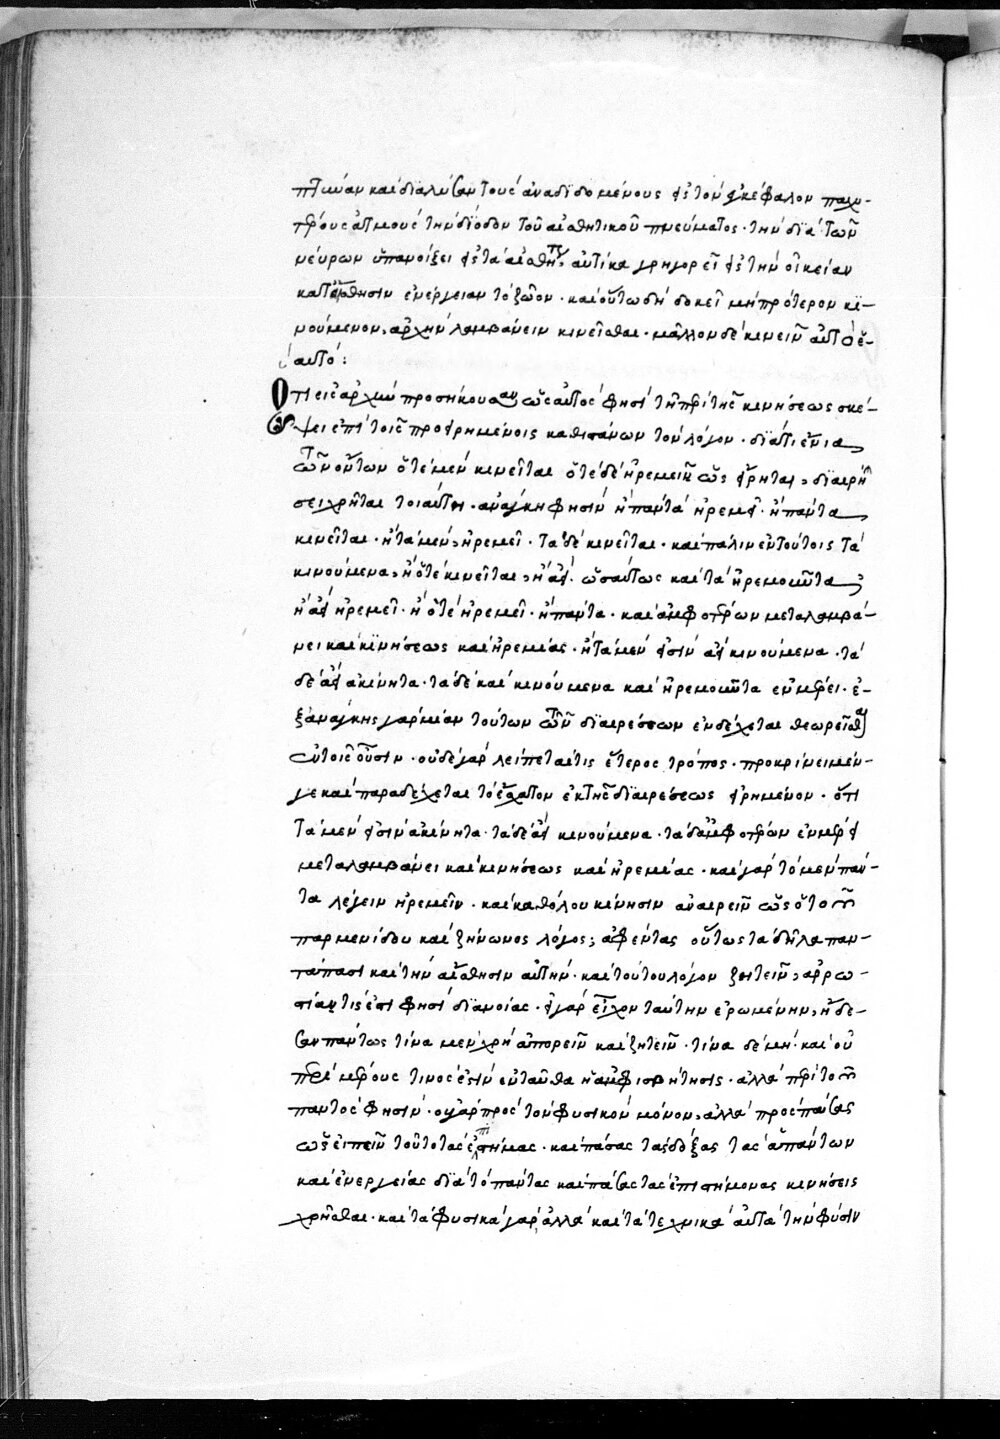 πτωμάν καὶ διαλύσαν τοὺς ἀναδιδομένους εἰς τὸν ἐγκέφαλον παχυ-
τέρους ἀτμοὺς τὴν δίοδον τοῦ αἰσθητικοῦ πνεύματος· τὴν διὰ τῶν
νεύρων ὑπανοίξει εἰς τὰ αἰσθητ αὐτίκα γρηγορεῖ εἰς τὴν οἰκείαν
κατ αἴσθησιν ἐνέργειαν τὸ ζῶον· καὶ οὕτω δὴ δοκεῖ μὴ πρότερον κι-
νούμενον, ἀρχὴν λαμβάνειν κινεῖσθαι· μᾶλλον δὲ κινεῖν αὐτὸ ἑ-
αυτό:
Ὅτι εἰς ἀρχὴν προσήκουσαν ὡς αὐτός φησι τῇ περὶ τῆς κινήσεως σκέ-
ψει ἐπὶ τοῖς προειρημένοις καθιστάνων τὸν λόγον· διατί ἔνια
τῶν ὄντων ὁτὲ μὲν κινεῖται ὁτὲ δὲ ἠρεμεῖν ὡς εἴρηται, διαιρή
σει χρῆται τοιαύτη· ἀνάγκη φησὶν ἢ πάντα ἠρεμεῖ· ἢ πάντα
κινεῖται· ἢ τὰ μὲν, ἠρεμεῖ· τὰ δὲ κινεῖται· καὶ πάλιν ἐν τούτοις τὰ
κινούμενα, ἢ ὁτὲ κινεῖται, ἢ ἀεί· ὡσαύτως καὶ τὰ ἠρεμοῦντα,
ἢ ἀεὶ ἠρεμεῖ· ἢ ὁτὲ ἠρεμεῖ· ἢ πάντα· καὶ ἀμφοτέρων μεταλαμβά-
νει καὶ κινήσεως καὶ ἠρεμίας· ἢ τὰ μέν εἰσιν ἀεὶ κινούμενα· τὰ
δὲ ἀεὶ ἀκίνητα· τὰ δὲ καὶ κινούμενα καὶ ἠρεμοῦντα ἐν μέρει· ἐ-
ξανάγκης γὰρ μίαν τούτων τῶν διαιρέσεων ἐνδέχεται θεωρεῖσθαι
ἐν τοῖς οὖσιν· οὐδὲ γὰρ λείπεταί τις ἕτερος τρόπος· προκρίνει μέν-
γε καὶ παραδέχεται τὸ ἔσχατον ἐκ τῆς διαιρέσεως εἰρημένον· ὅτι
τὰ μέν εἰσιν ἀκίνητα· τὰ δὲ ἀεὶ κινούμενα· τὰ δ ἀμφοτέρων ἐν μέρει
μεταλαμβάνει καὶ κινήσεως καὶ ἠρεμίας· καὶ γὰρ τὸ μὲν πάν-
τα λέγειν ἠρεμεῖν· καὶ καθόλου κίνησιν ἀναιρεῖν ὡς ὁ τοῦ
παρμενίδου καὶ ζήνωνος λόγος, ἀφέντας οὕτως τὰ δῆλα παν-
τάπασι καὶ τὴν αἴσθησιν αὐτήν· καὶ τούτου λόγον ζητεῖν, ἀρρω-
στία τίς ἐστί φησι διανοίας· εἰ γὰρ εἶχον ταύτην ἐρωμένην, ᾔδε-
σαν πάντως τίνα μὲν χρὴ ἀπορεῖν καὶ ζητεῖν· τίνα δὲ μή· καὶ οὐ
περὶ μέρους τινός ἐστιν ἐνταῦθα ἡ ἀμφισβήτησις· ἀλλὰ περὶ τοῦ
παντός φησιν· οὐ γὰρ πρὸς τὸν φυσικὸν μόνον, ἀλλὰ πρὸς πάσας
ὡς εἰπεῖν τοῦτο τὰς ἐπιστήμας· καὶ πάσας τὰς δόξας τὰς ἁπάντων
καὶ ἐνεργείας διὰ τὸ πάντας καὶ πάσας τὰς ἐπιστήμονας κινήσεις
χρῆσθαι· καὶ τὰ φυσικὰ γὰρ, ἀλλὰ καὶ τὰ τεχνικὰ αὐτὰ τὴν φύσιν